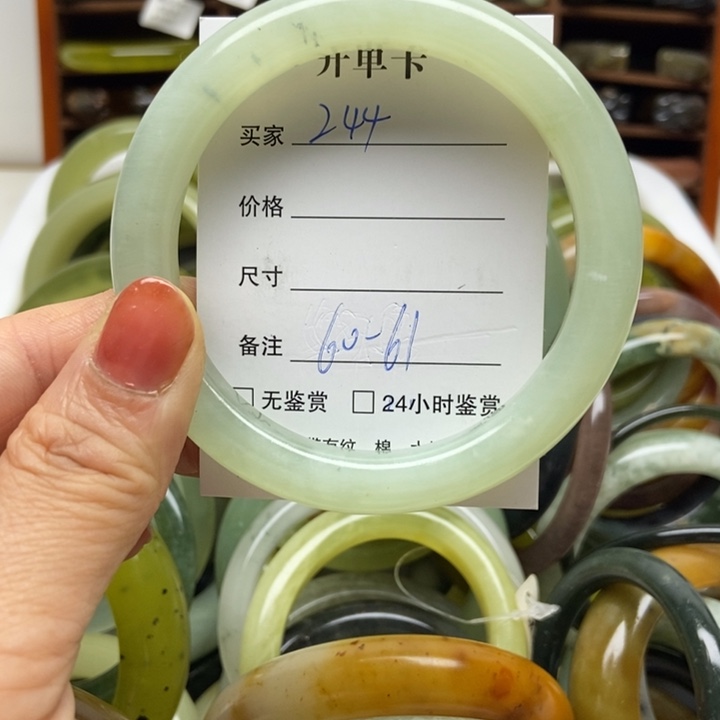 开单卡
买家 244
价格
尺寸
备注 60-61
无鉴赏 24小时鉴赏